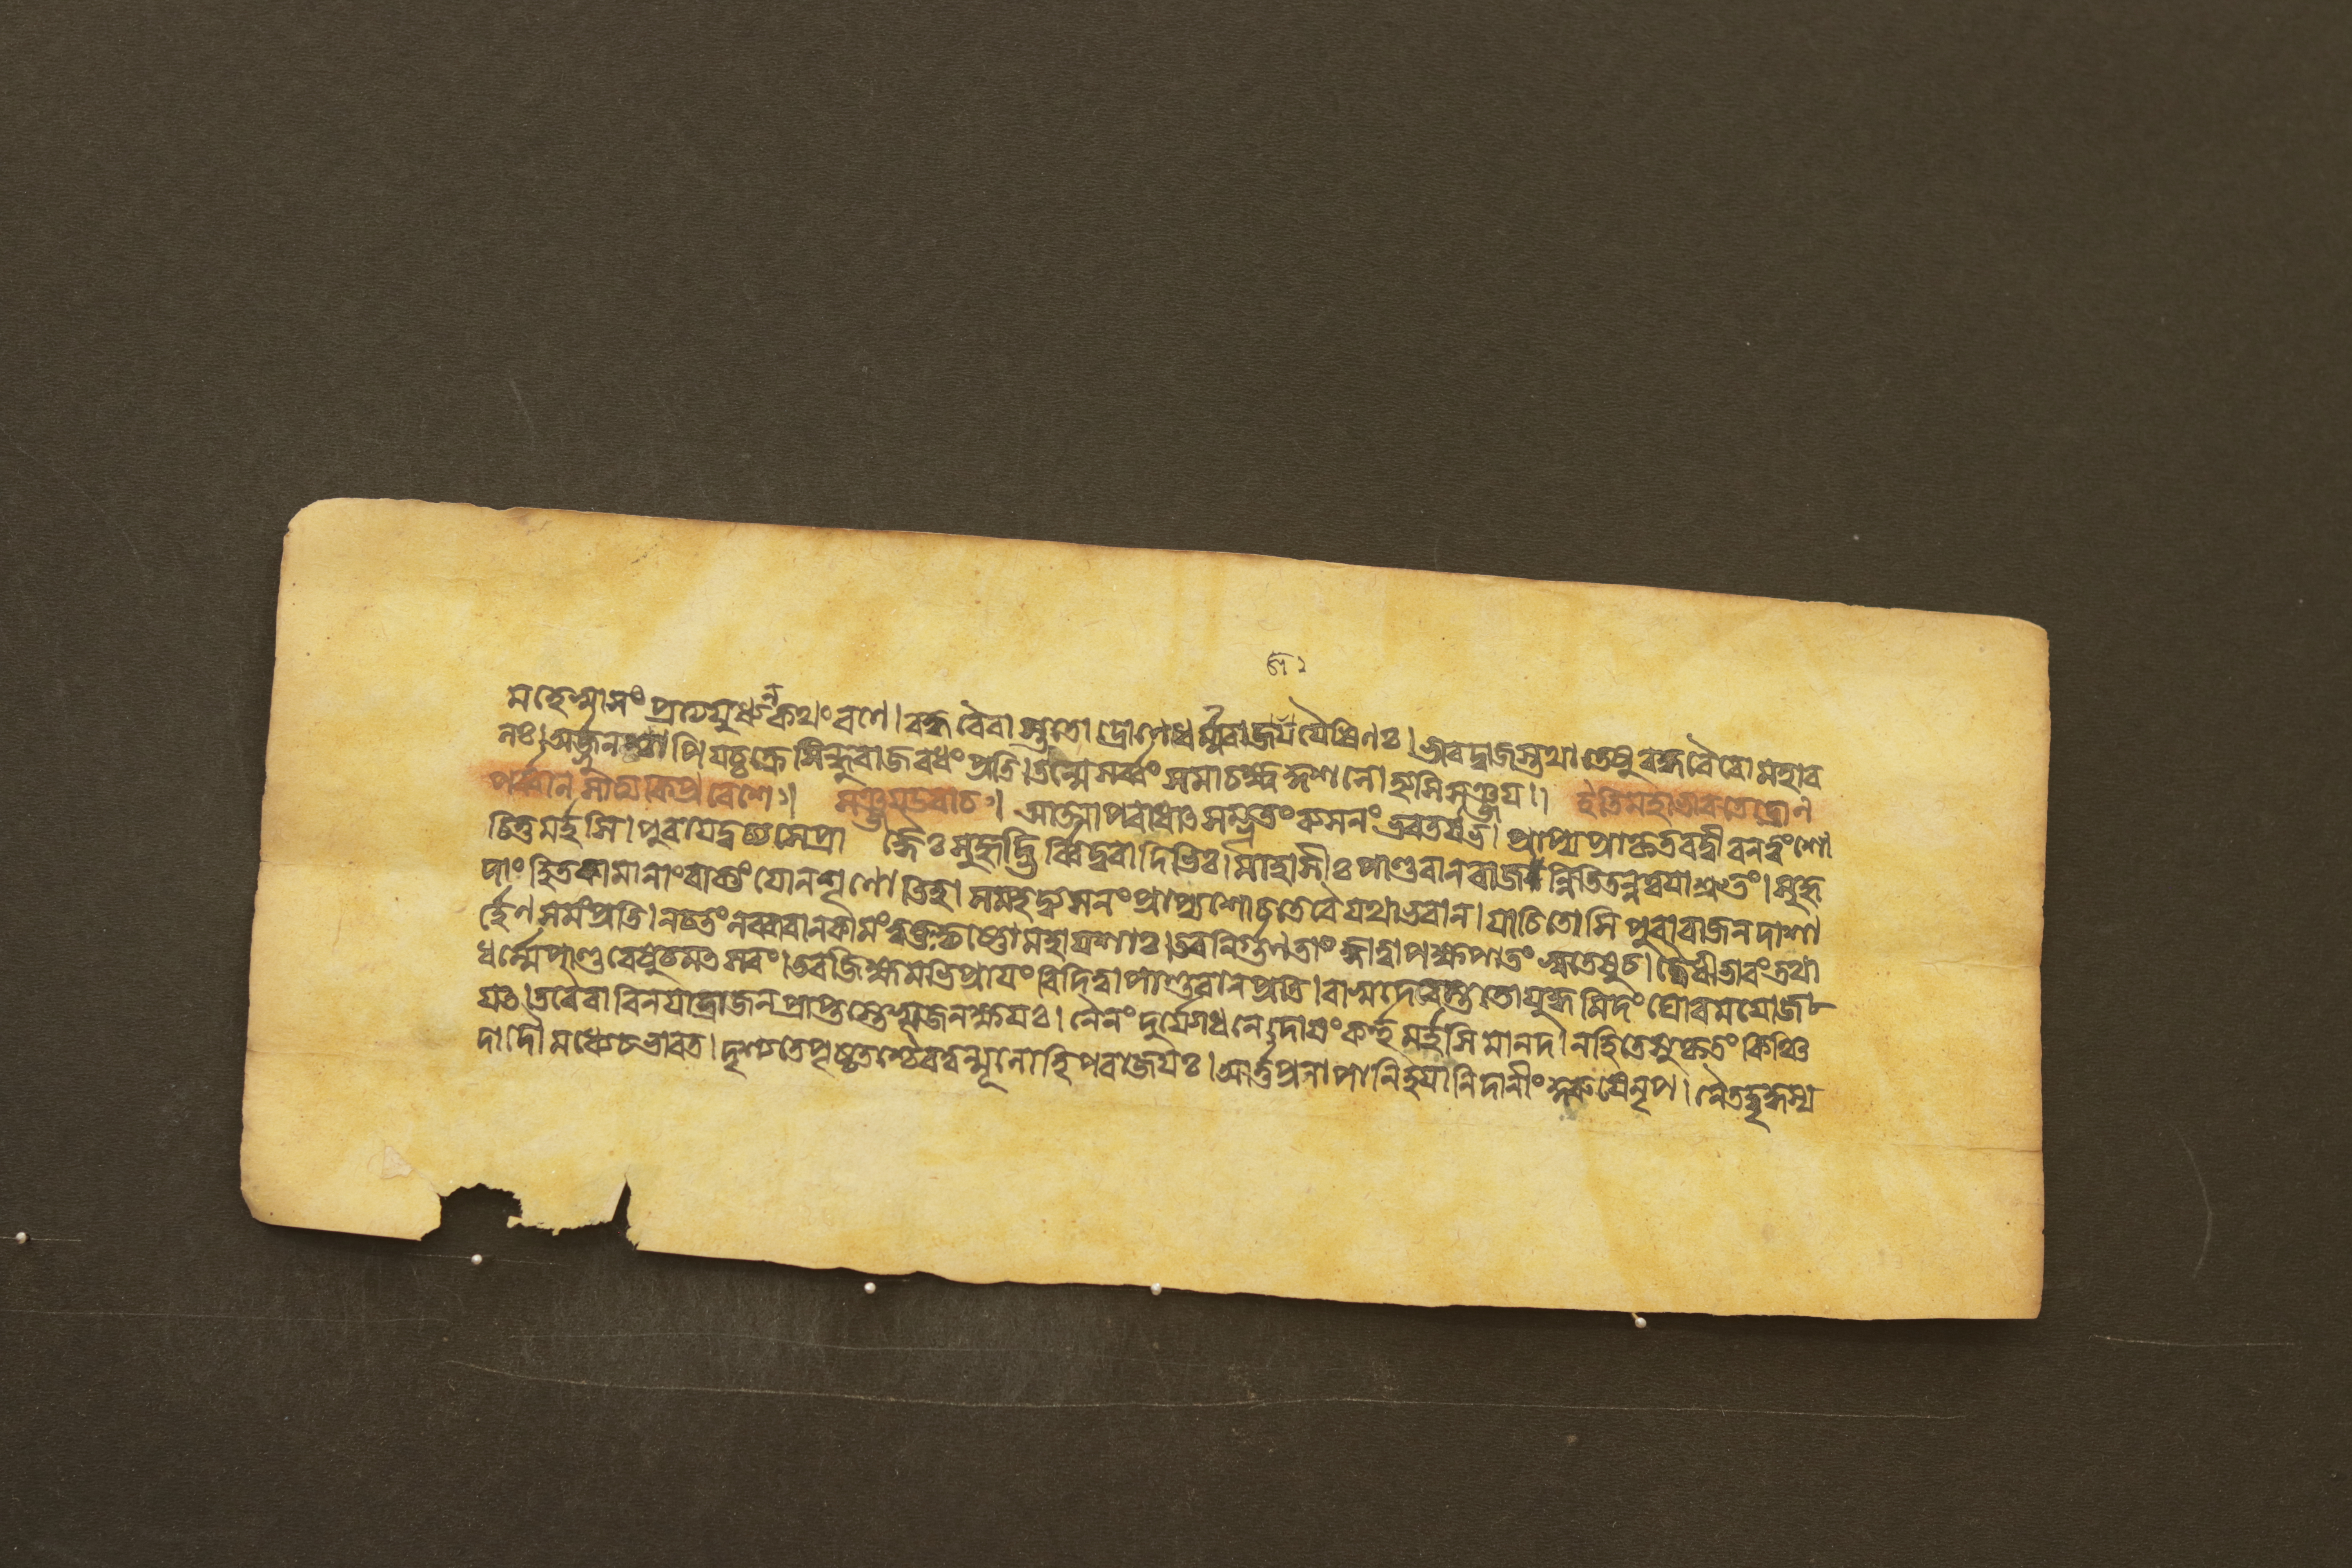 মহেষ্বাসং প্রত্যযুধ্যন্ কথং রণে। বদ্ধবৈরাস্ততো দ্রোণে ধর্ম্মরাজজযৈষিণঃ। ভারদ্বাজস্তথা তেষু বদ্ধবৈরো মহার
থঃ। অর্জ্জুনশ্চাপি যচ্চক্রে সিন্ধুরাজবধং প্রতি। তন্মে সর্ব্বং সমাচক্ষ্ব কুশলো হ্যসি সঞ্জয।। ইতি মহাভারতে দ্রোণ
পর্ব্বনি সাত্যকিপ্রবেশঃ। সঞ্জয উবাচ। আত্মাপরাধাৎ সম্ভূতং ব্যসনং ভরতর্ষভ। প্রাপ্য প্রাকৃতবদ্বীর ন ত্বং শো
চিতুমর্হসি। পুরা যদুচ্যসে প্রাজ্ঞৈঃ সুহৃদ্ভির্বিদুরাদিভিঃ। মাহার্ষীঃ পাণ্ডবান রাজন্নিতি তন্ন ত্বযা শ্রুতং। সুহৃ
দাং হিতকামানাং বাক্যং যো ন শৃণোতি হ। স মহদ্ব্যসনং প্রাপ্য শোচতে বৈ যথা ভবান। যাচিতোসি পুরা রাজন দাশা
র্হেণ শমং প্রতি। ন চ তং লব্ধবান কামং কৃষ্ণো মহাযশাঃ। তব নির্গুণতাং জ্ঞাত্বা পক্ষপাতং সুতেষু চ। দ্বৈধীভাবং তথা
ধর্ম্মে পাণ্ডবেষু চ মৎসরং। তব জিহ্মমভিপ্রাযং বিদিত্বা পাণ্ডবান প্রতি। বাসুদেবস্ততো যুদ্ধমিদং ঘোরমযোজ
যৎ। তবৈবাবিনযাদ্রাজন্ প্রাপ্তস্তেষ জনক্ষযঃ। নৈনং দুর্যোধনে দোষং কর্ত্তুমর্হসি মানদ। ন হি তে সুকৃতং কিঞ্চি
দাদৌ মধ্যে চ ভারত। দৃশ্যতে পৃষ্ঠতশ্চৈব ত্বন্মূলো হি পরাজযঃ।